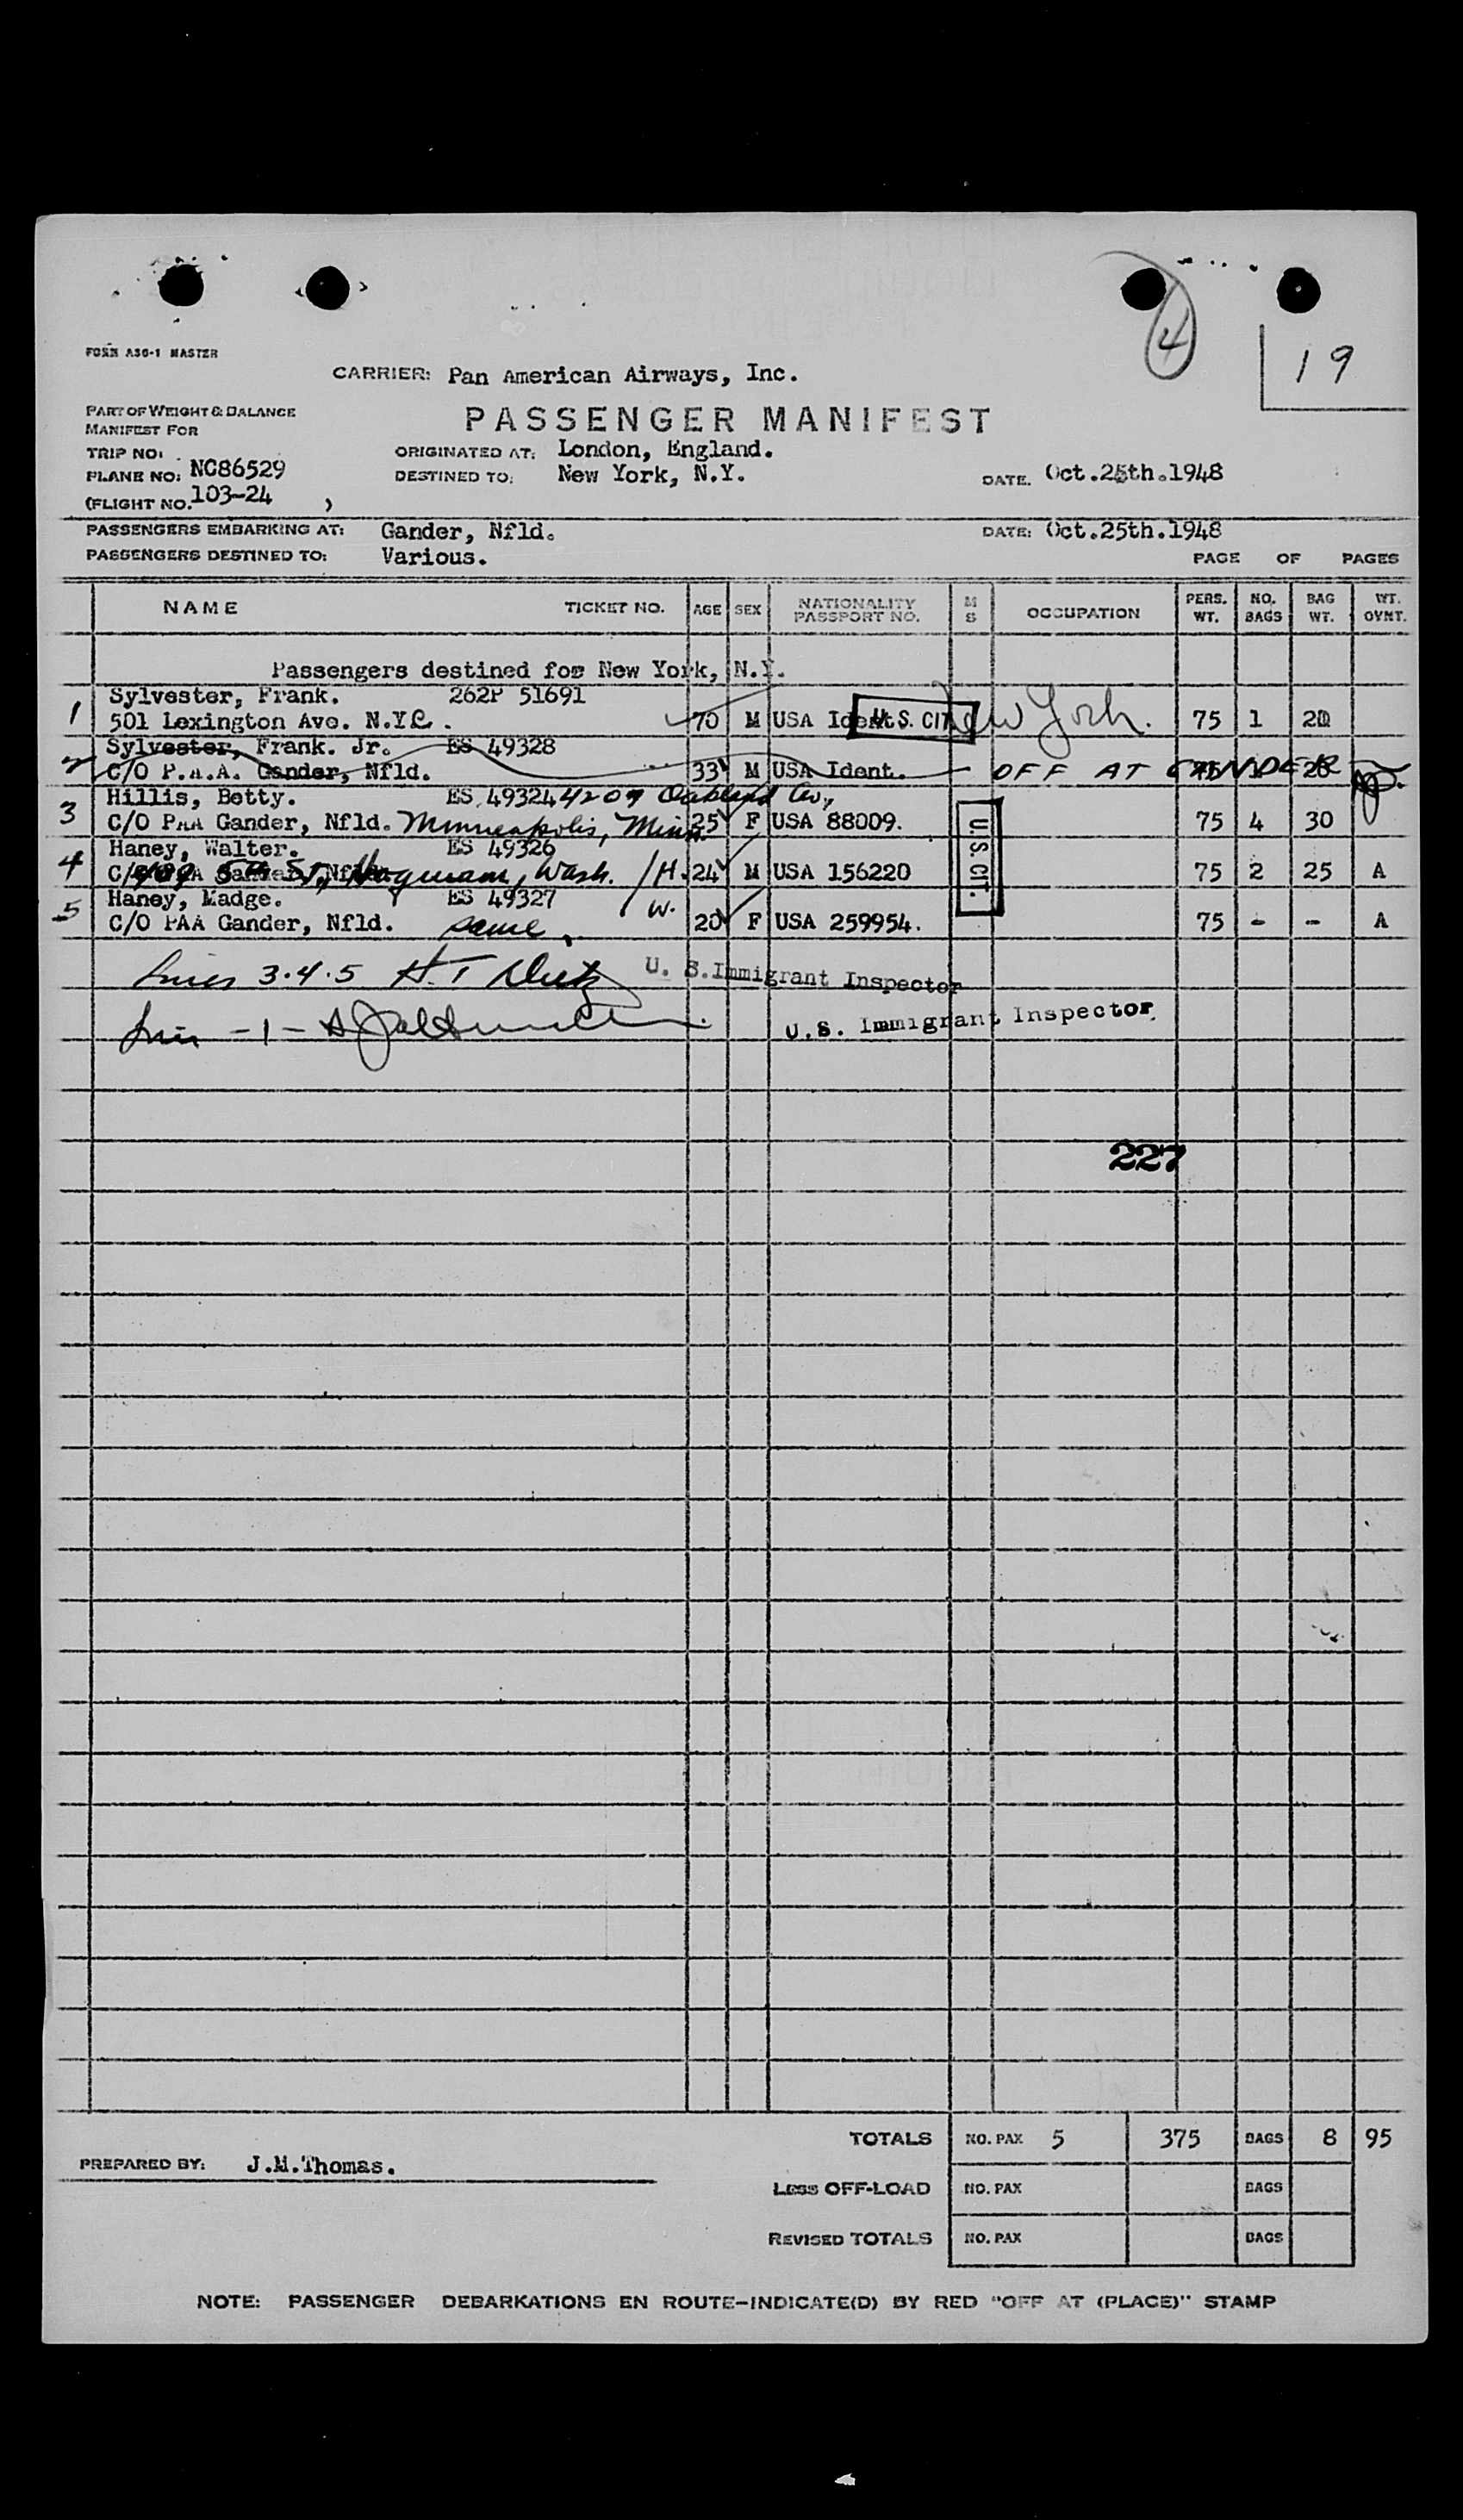 4
19
FORM A36-1 MASTER
CARRIER: Pan American Airways, Inc.
PART OF WEIGHT & BALANCE
MANIFEST FOR
PASSENGER MANIFEST
TRIP NO:
ORIGINATED AT: London, England.
PLANE NO: NC86529
DESTINED TO: New York, N.Y.
DATE. Oct.25th.1948
(FLIGHT NO. 103-24 )
PASSENGERS EMBARKING AT: Gander, Nfld.
DATE: Oct.25th.1948
PASSENGERS DESTINED TO: Various.
PAGE OF PAGES
NAME TICKET NO. AGE SEX NATIONALITY PASSPORT NO. M S OCCUPATION PERS. WT. NO. BAGS BAG WT. WT. OVNT.
Passengers destined for New York, N.Y.
1 Sylvester, Frank. 262P 51691
501 Lexington Ave. N.Y.C. 70 M USA Ident U.S. CIT. New York. 75 1 20
2 Sylvester, Frank. Jr. ES 49328
C/O P.A.A. Gander, Nfld. 33 M USA Ident. OFF AT GANDER 75 1 20
3 Hillis, Betty. ES 49324 4209 Oakland Av,
C/O PAA Gander, Nfld. Minneapolis, Minn. 25 F USA 88009. U.S. CIT. 75 4 30
4 Haney, Walter. ES 49326
C/O PAA Gander, Nfld. 5th St, Hoquiam, Wash. /H. 24 M USA 156220 75 2 25 A
5 Haney, Madge. ES 49327 /W.
C/O PAA Gander, Nfld. same, 20 F USA 259954. 75 - - A
Lines 3-4-5 H.T. U. S. Immigrant Inspector
Line -1- U.S. Immigrant Inspector
227
TOTALS NO. PAX 5 375 BAGS 8 95
PREPARED BY: J.M.Thomas.
LESS OFF-LOAD NO. PAX BAGS
REVISED TOTALS NO. PAX BAGS
NOTE: PASSENGER DEBARKATIONS EN ROUTE-INDICATE(D) BY RED "OFF AT (PLACE)" STAMP